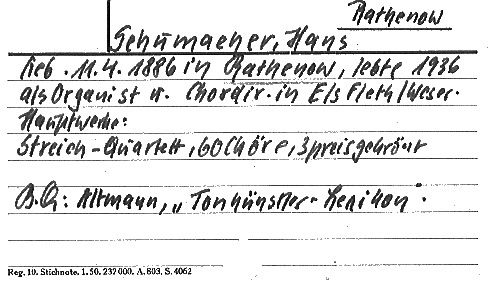 Rathenow
Schumacher, Hans
Geb. 11.4.1886 in Rathenow, lebte 1936
als Organist u. Chordir. in Elsfleth/Weser.
Hauptwerke:
Streich-Quartett, 60 Chöre, 3 preisgekrönt
B.Q.: Altmann, „Tonkünstler-Lexikon".
Reg. 10. Stichnote. 1. 50. 232 000. A. 803. S. 4062